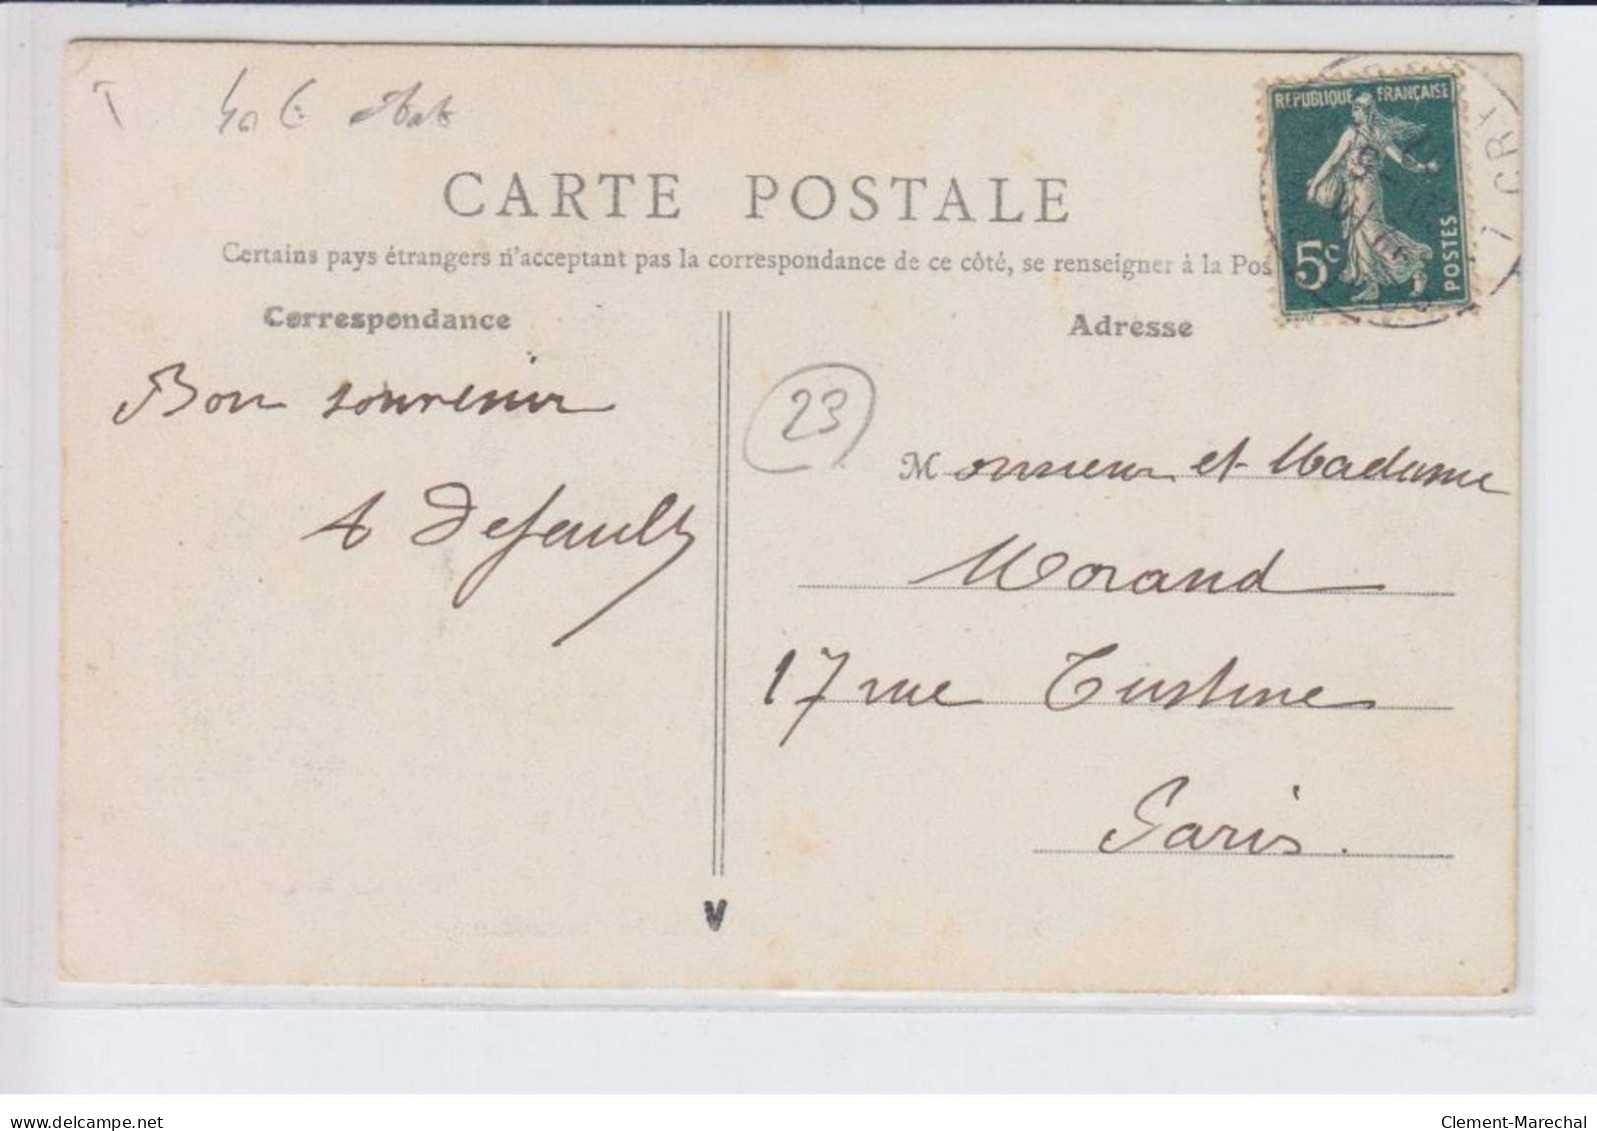 CARTE POSTALE
Certains pays étrangers n'acceptant pas la correspondance de ce côté, se renseigner à la Pos
Correspondance
Adresse
REPUBLIQUE FRANÇAISE
5c
POSTES
Bon souvenir
A Default
23
Monsieur et Madame
Morand
17 rue Custine
Paris.
V
delcampe.net
Clement-Marechal